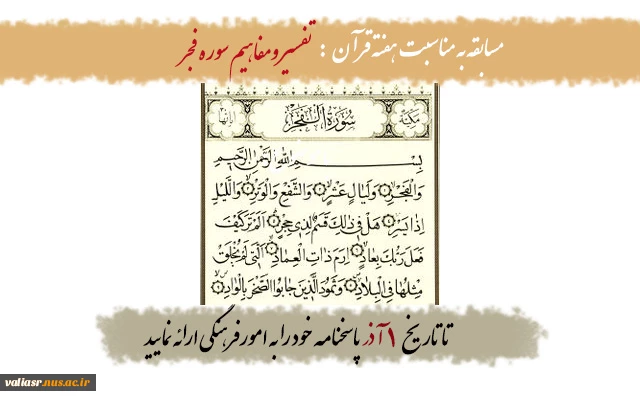 مسابقه به مناسبت هفته قرآن : تفسیر و مفاهیم سوره فجر
مکیة
سُورَةُ الْفَجْرِ
بِسْمِ اللَّهِ الرَّحْمَٰنِ الرَّحِيمِ
وَالْفَجْرِ وَلَيَالٍ عَشْرٍ وَالشَّفْعِ وَالْوَتْرِ وَاللَّيْلِ
إِذَا يَسْرِ هَلْ فِي ذَٰلِكَ قَسَمٌ لِذِي حِجْرٍ أَلَمْ تَرَ كَيْفَ
فَعَلَ رَبُّكَ بِعَادٍ إِرَمَ ذَاتِ الْعِمَادِ الَّتِي لَمْ يُخْلَقْ
مِثْلُهَا فِي الْبِلَادِ وَثَمُودَ الَّذِينَ جَابُوا الصَّخْرَ بِالْوَادِ
تا تاریخ ۱ آذر پاسخنامه خود را به امور فرهنگی ارائه نمایید
valiasr.nus.ac.ir